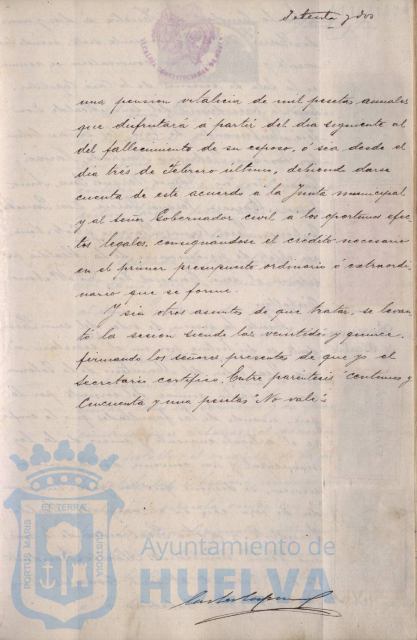 Setenta y dos
una pension vitalicia de mil pesetas anuales
que disfrutará a partir del dia siguiente al
del fallecimiento de su esposo, ó sea desde el
dia tres de Febrero último, debiendo darse
cuenta de este acuerdo á la Junta municipal
y al Señor Gobernador civil a los oportunos efec-
tos legales, consignándose el crédito necesario
en el primer presupuesto ordinario ó extraordi-
nario que se forme.
Y sin otros asuntos de que tratar, se levan-
tó la sesion siendo las veintidos y quince,
firmando los señores presentes de que yo el
secretario certifico. Entre parentesis "centimos y
Cincuenta y una pesetas" No vale
PORTUS MARIS
ET TERRAE
CUSTODIA
Ayuntamiento de
HUELVA